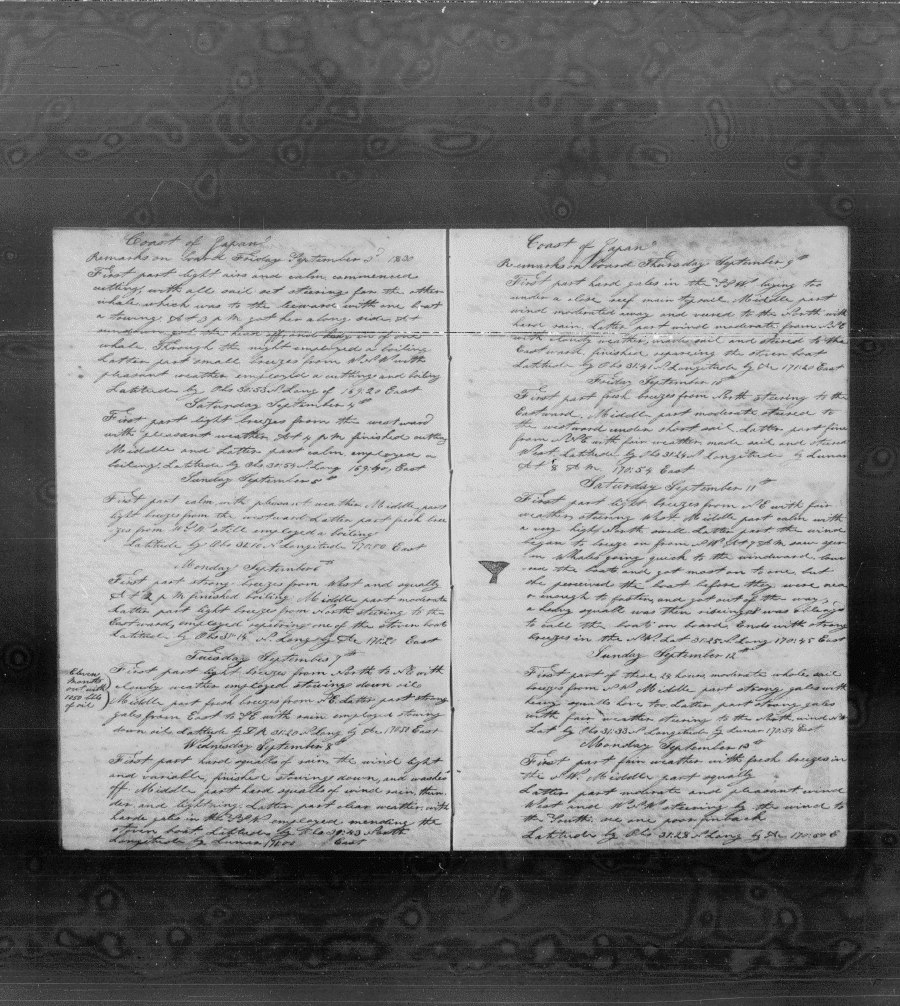 Coast of Japan
Remarks on board Friday September 3d 1830
First part light airs and calm, commenced
cutting with all sail set steering for the other
whale which was to the leeward with one boat
a towing. At 3 P M got her along side. At
sundown got the head off and body in of one
whale. Through the night employed a boiling
Latter part small breezes from W.S.W with
pleasant weather employed a cutting and boiling
Latitude by Obs 30:53 N Long of 169.20 East
Saturday September 4th
First part light breezes from the westward
with pleasant weather At 4 P M finished cutting
Middle and Latter part calm employed a
boiling Latitude by Obs 30:54 N Long 169:40, East
Sunday September 5th
First part calm with pleasant weather Middle part
light breezes from the westward Latter part fresh bree
zes from still employed a boiling
Latitude by Obs 31:10 N Longitude 170.00 East
Monday September 6th
First part strong breezes from West and squally
At P M finished boiling Middle part moderate
Latter part light breezes from North steering to the
Eastward, employed repairing one of the stoven boats
Latitude by Obs 31:14 N Long by Do 170:21 East
Tuesday September 7th
First part light breezes from North to NE with
cloudy weather employed stowing down oil
Eleven
Months
out with
1050 bbls
of oil
Middle part fresh breezes from NE Latter part strong
gales from East to NE with rain employed stowing
down oil Latitude by D R 31:20 N Long by Do 170:51 East
Wednesday September 8th
First part hard squalls of rain, the wind light
and variable, finished stowing down, and washed
off Middle part hard squalls of wind rain, thun
der, and lightning. Latter part clear weather, with
hard gales in the employed mending the
stoven boat Latitude by Obs 30:43 North
Longitude by Lunar East
Coast of Japan
Remarks on board Thursday September 9th
First part hard gales in the lying too
under a close reef main tysail Middle part
wind moderated away and veered to the North with
hard rain, Latter part wind moderate from
with cloudy weather, made sail and steered to the
Eastward, finished repairing the stoven boat
Latitude by Obs 31:41 N Longitude by Do 171:20 East
Friday September 10th
First part fresh breezes from North steering to the
Eastward, Middle part moderate steered to
the westward under short sail Latter part fine
from with fair weather made sail and steered
West Latitude by Obs 31:24 N Longitude by Lunar
At 8 A M. 170:54 East
Saturday September 11th
First part light breezes from NE with fair
weather, steering West, Middle part calm with
a very light North swell Latter part the wind
began to breeze on from At 7 A M saw sper
m Whales going quick to the windward low
red the boats and got most on to one, but
she perceived the boat before they were nea
r enough to fasten, and got out of the way,
a heavy squall was then rising was obliged
to call the boats on board Ends with strong
breezes in the Lat 31:28 N Long 170:45 East
Sunday September 12th
First part of these 24 hours, moderate whole sail
breezes from Middle part strong gales with
heavy squalls hove too Latter part strong gales
with fair weather steering to the North, wind
Lat by Obs 31:33 N Longitude by Lunar 170:54 East
Monday September 13th
First part fair weather with fresh breezes in
the Middle part squally
Latter part moderate and pleasant wind
West and steering by the wind to
the South, see one poor finback
Latitude by Obs 31:28 N Long by Do 170:50 E